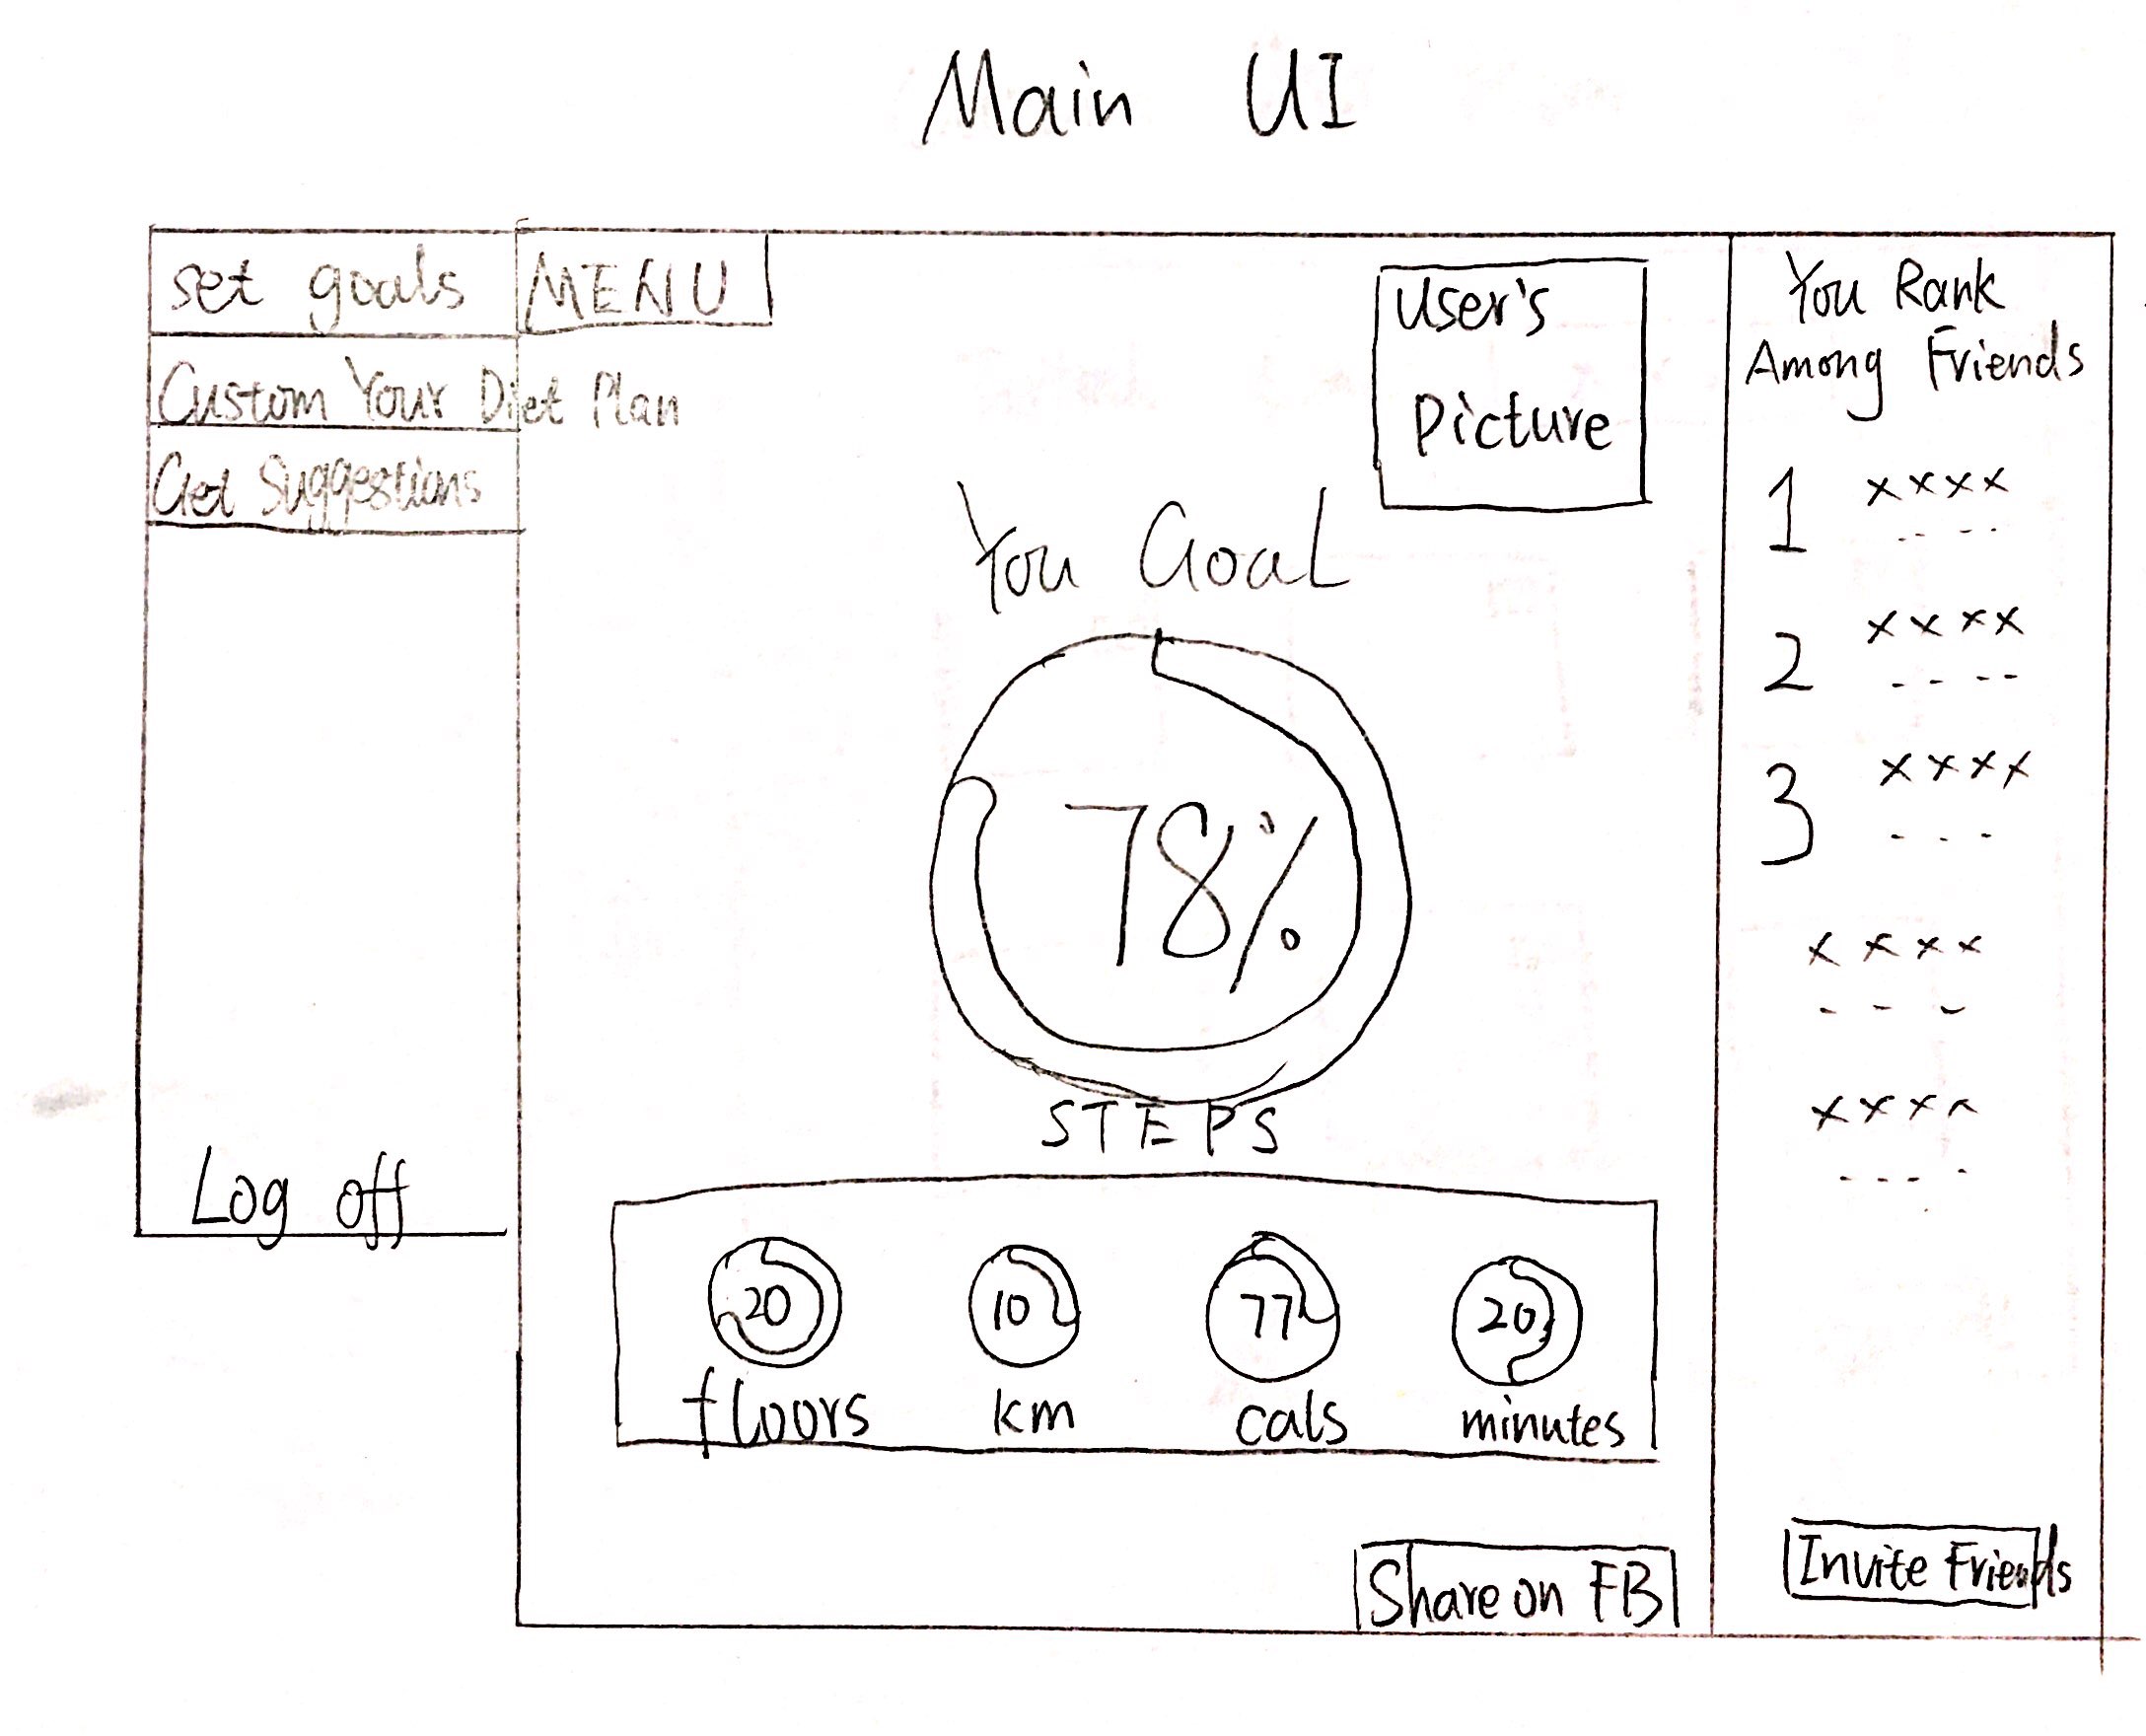 Main UI
set goals
MENU
Custom Your Diet Plan
Get Suggestions
Log off
User's
Picture
You Goal
78%
STEPS
20
floors
10
km
77
cals
20
minutes
Share on FB
You Rank
Among Friends
1 xxxx
- - - -
2 xxxx
- - - -
3 xxxx
- - -
xxxx
- - -
xxxx
- - - -
Invite Friends